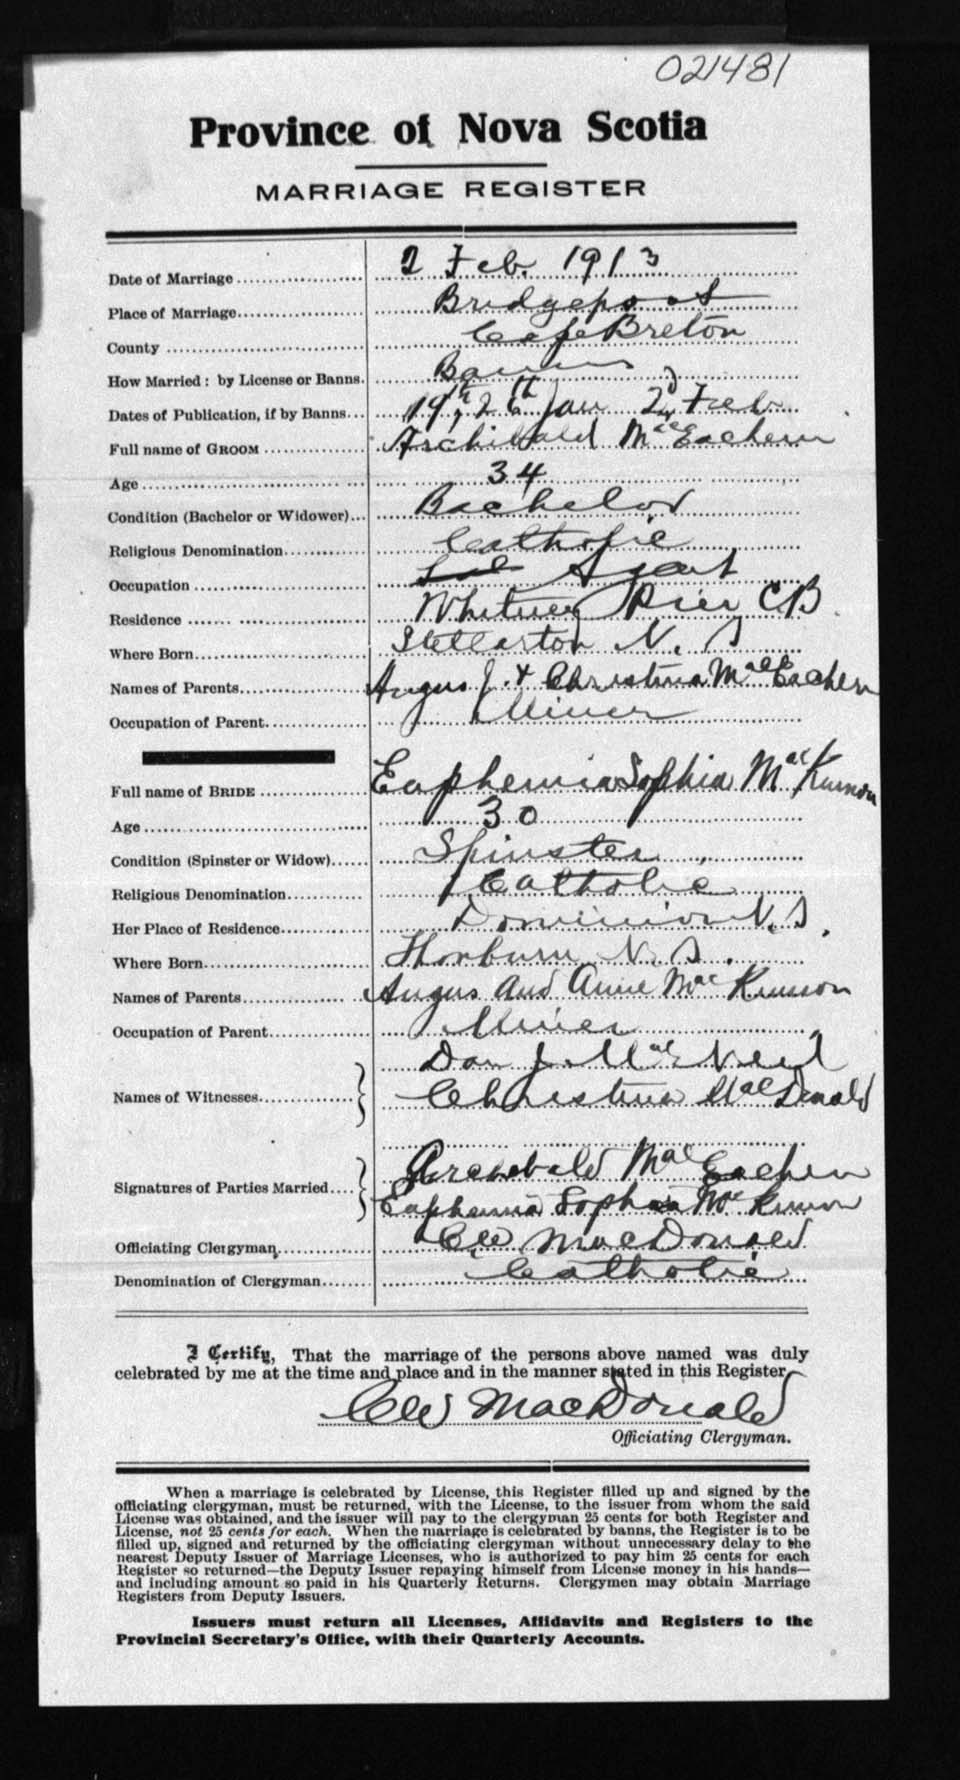 021481
Province of Nova Scotia
MARRIAGE REGISTER
Date of Marriage 2 Feb. 1913
Place of Marriage Bridgeport
County Cape Breton
How Married: by License or Banns. Banns
Dates of Publication, if by Banns 19th, 26th Jan 2nd Feb
Full name of GROOM Archibald MacEachern
Age 34
Condition (Bachelor or Widower) Bachelor
Religious Denomination Catholic
Occupation Agent
Residence Whitney Pier CB
Where Born Stellarton N. S
Names of Parents Angus J. + Christina MacEachern
Occupation of Parent Miner
Full name of BRIDE Euphemia Sophia MacKinnon
Age 30
Condition (Spinster or Widow) Spinster
Religious Denomination Catholic
Her Place of Residence Dominion N. S.
Where Born Thorburn N. S.
Names of Parents Angus and Annie MacKinnon
Occupation of Parent Miner
Dan J. MacNeil
Names of Witnesses Christina MacDonald
Archibald MacEachern
Signatures of Parties Married
Euphemia Sophia McKinnon
Officiating Clergyman CW MacDonald
Denomination of Clergyman Catholic
I Certify, That the marriage of the persons above named was duly
celebrated by me at the time and place and in the manner stated in this Register
CW MacDonald
Officiating Clergyman.
When a marriage is celebrated by License, this Register filled up and signed by the
officiating clergyman, must be returned, with the License, to the issuer from whom the said
License was obtained, and the issuer will pay to the clergyman 25 cents for both Register and
License, not 25 cents for each. When the marriage is celebrated by banns, the Register is to be
filled up, signed and returned by the officiating clergyman without unnecessary delay to the
nearest Deputy Issuer of Marriage Licenses, who is authorized to pay him 25 cents for each
Register so returned—the Deputy Issuer repaying himself from License money in his hands—
and including amount so paid in his Quarterly Returns. Clergymen may obtain Marriage
Registers from Deputy Issuers.
Issuers must return all Licenses, Affidavits and Registers to the
Provincial Secretary's Office, with their Quarterly Accounts.